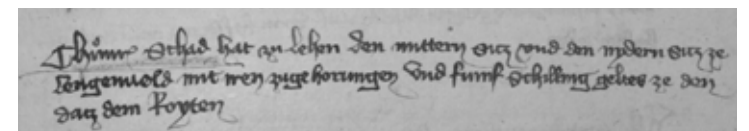 Thume Schad hat zu lehen den mittern sicz vnd den nydern sicz ze
lengenueld mit iren zugehorungen Vnd funf Schilling geltes ze den
dacz dem Royten